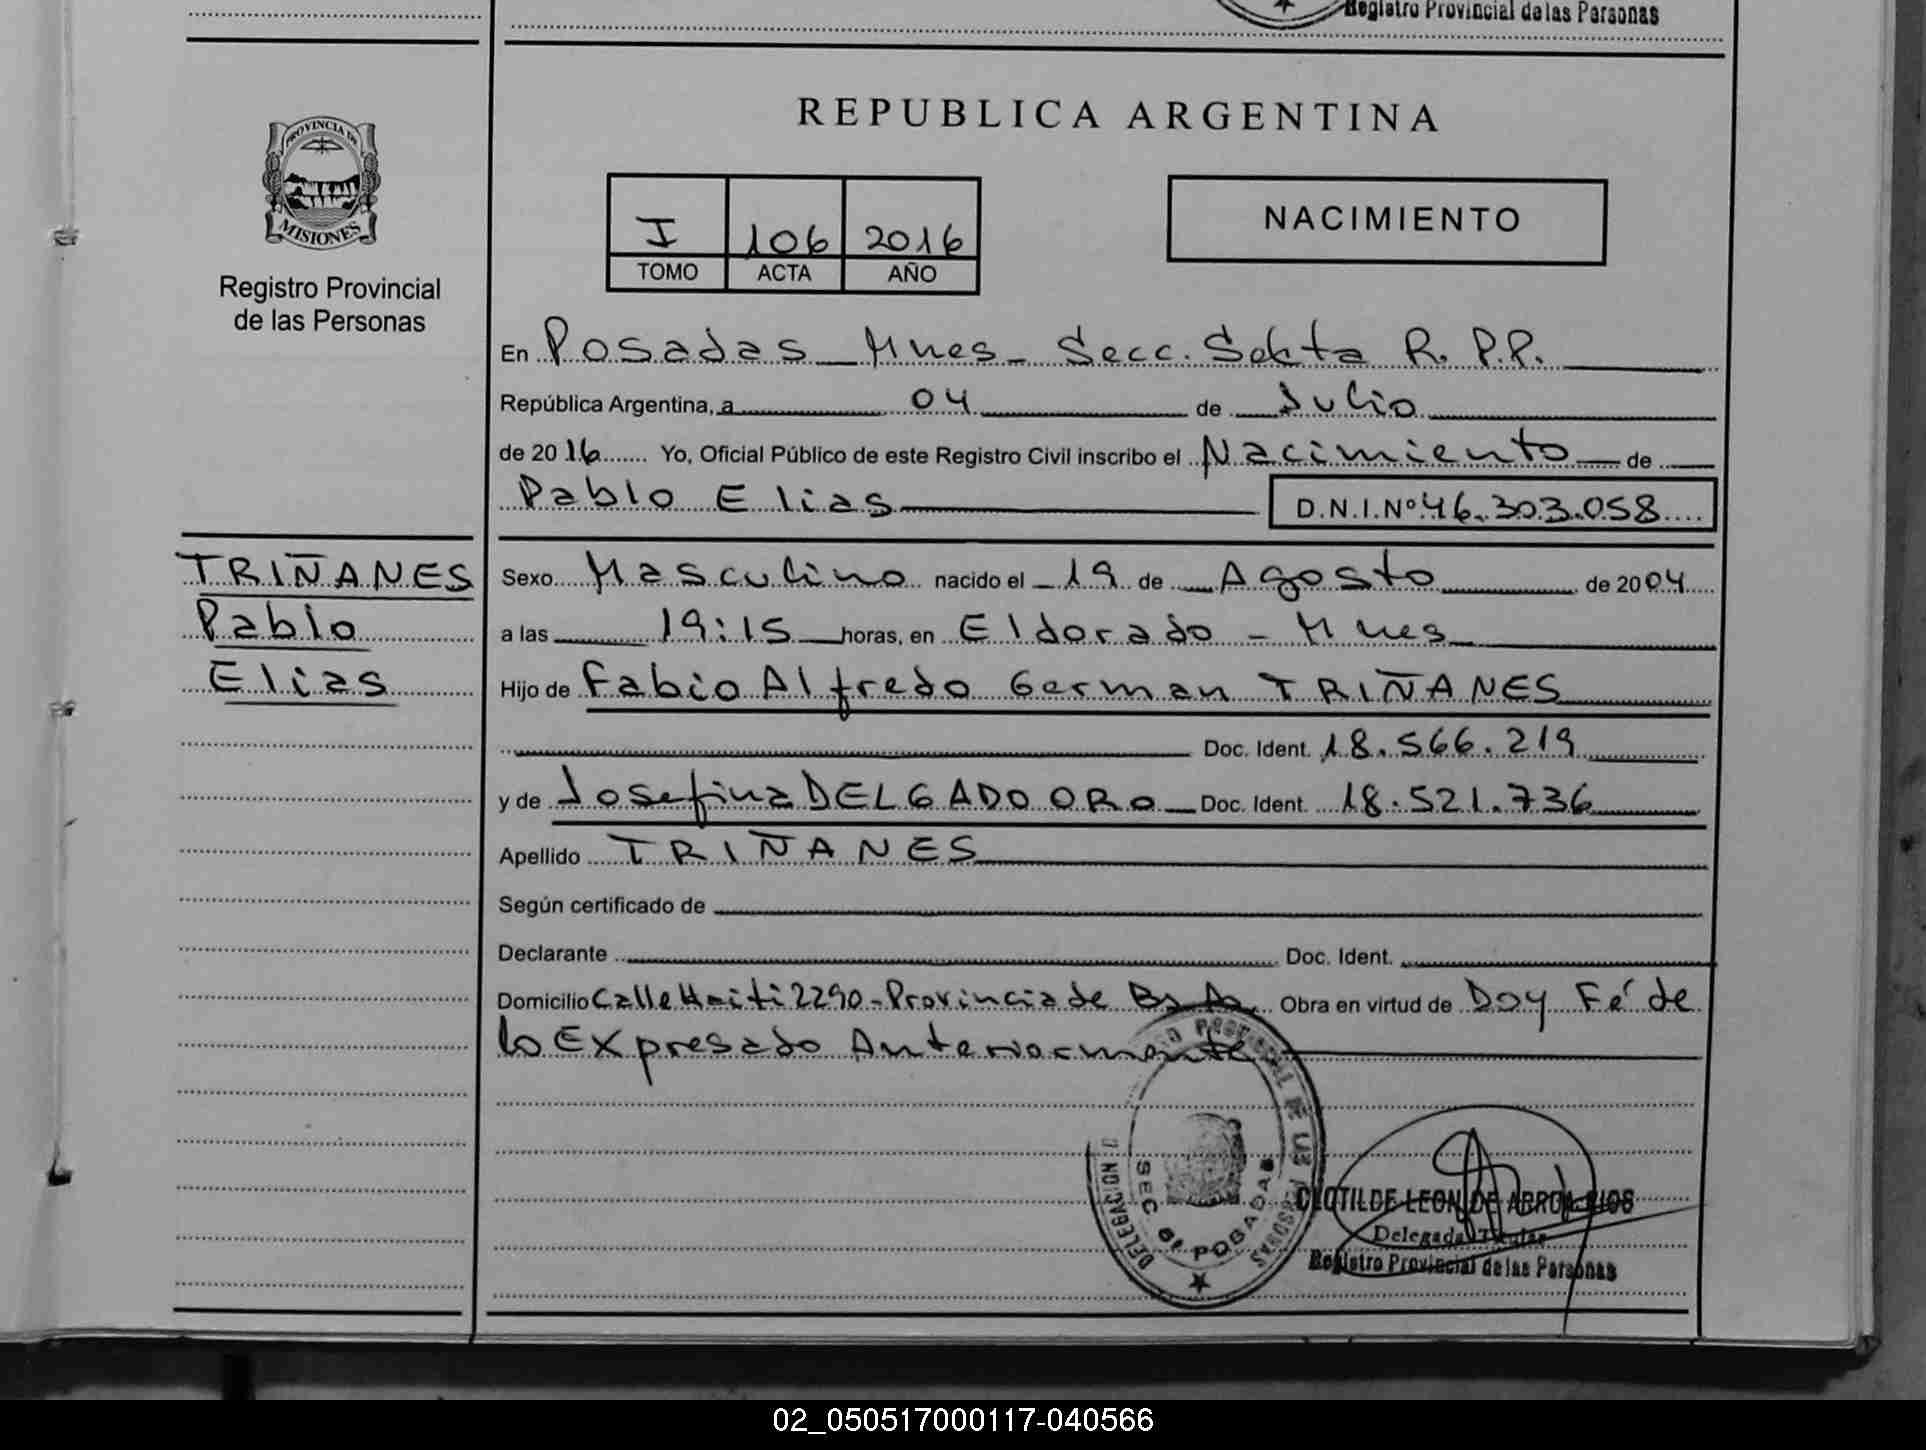 Registro Provincial de las Personas
REPUBLICA ARGENTINA
PROVINCIA DE
MISIONES
Registro Provincial
de las Personas
I 106 2016
TOMO ACTA AÑO
NACIMIENTO
En Posadas Mnes - Secc. Sekta R.P.P.
República Argentina, a 04 de Julio
de 2016 Yo, Oficial Público de este Registro Civil inscribo el Nacimiento de
Pablo Elias D.N.I.Nº 46.303.058
TRIÑANES
Pablo
Elias
Sexo Masculino nacido el 19 de Agosto de 2004
a las 19:15 horas, en Eldorado - Mnes
Hijo de Fabio Alfredo German TRIÑANES
Doc. Ident. 18.566.219
y de Josefina DELGADO ORO Doc. Ident. 18.521.736
Apellido TRIÑANES
Según certificado de
Declarante Doc. Ident.
Domicilio Calle Haiti 2290 - Provincia de Bs As Obra en virtud de Doy Fé de
lo Expresado Anteriormente
DELEGACION
SEC. 6ª POSADAS
CLOTILDE LEON DE ARROS RIOS
Delegada Titular
Registro Provincial de las Personas
02_050517000117-040566